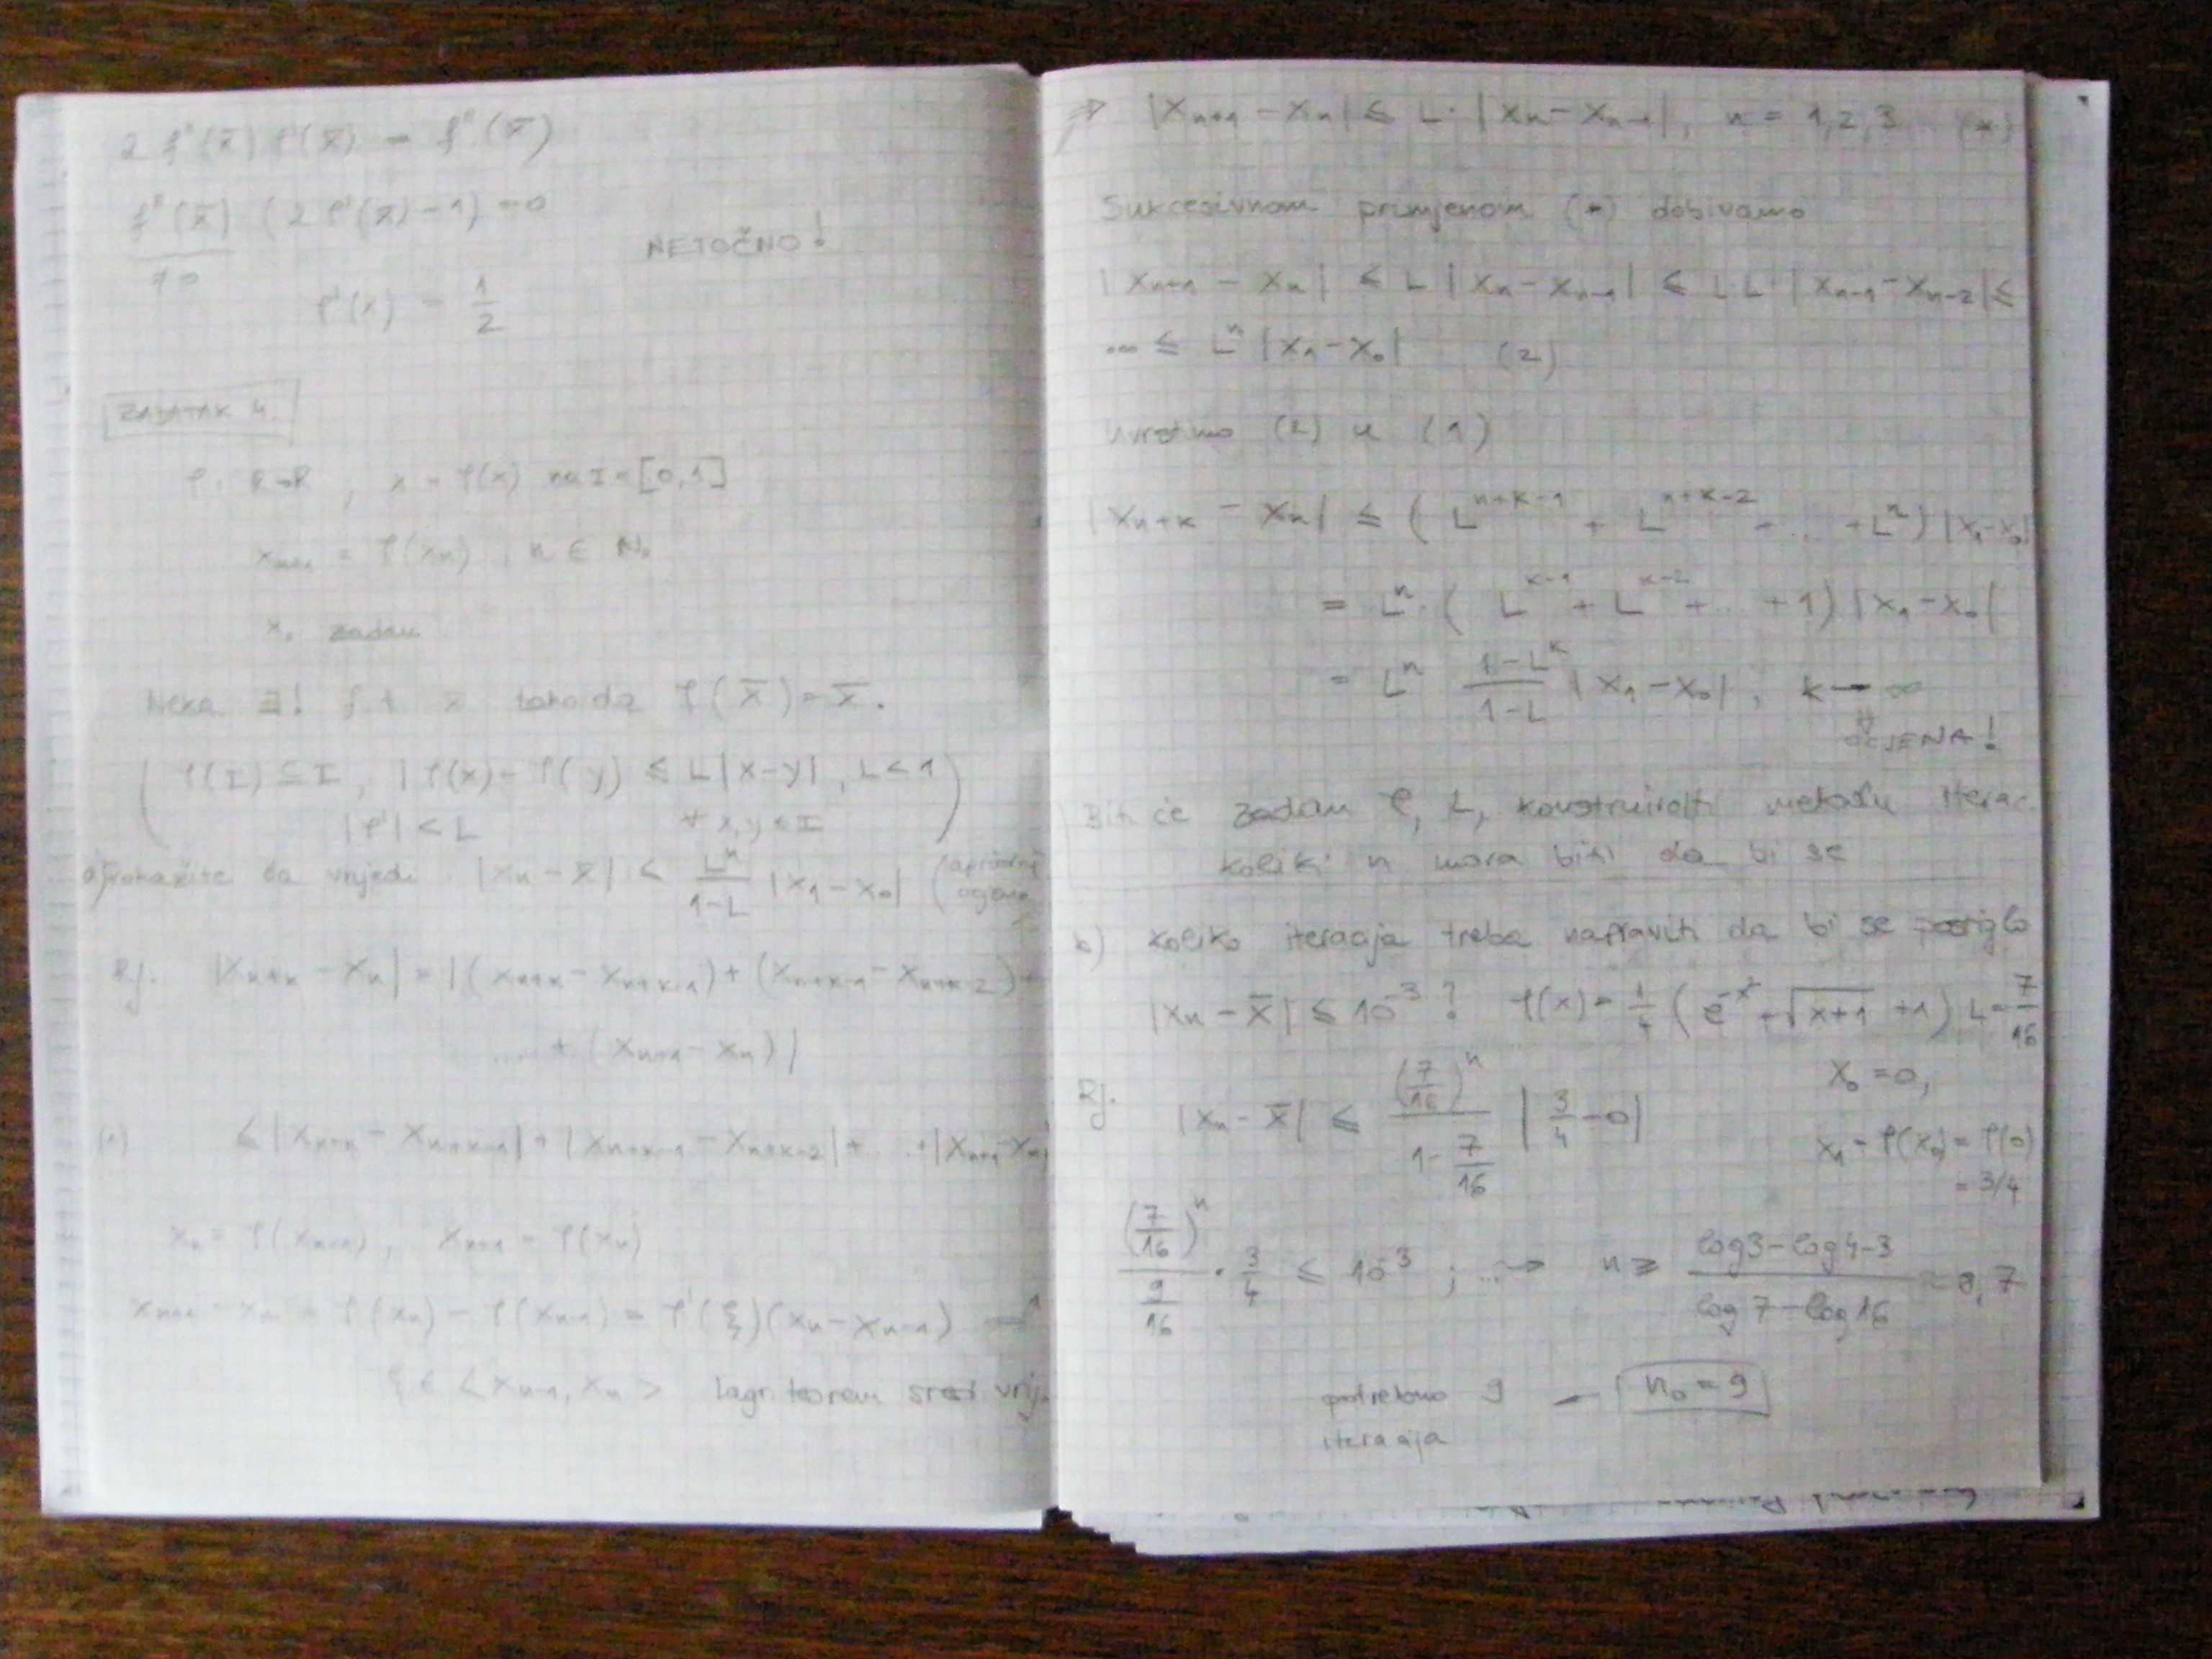 2 f'(x̄) φ'(x̄) = f''(x̄)
f''(x̄) (2 φ'(x̄) - 1) = 0
≠0
NETOČNO!
φ'(x) = 1/2
ZADATAK 4.
φ: R→R, x = φ(x) na I = [0,1]
xₙ₊₁ = φ(xₙ), n ∈ N₀
x₀ zadan
Neka ∃! f.t. x̄ tako da φ(x̄) = x̄.
( φ(I) ⊆ I, |φ(x) - φ(y) ≤ L|x-y|, L < 1 )
|φ'| < L ∀ x,y ∈ I
a) Dokažite da vrijedi |xₙ - x̄| ≤ Lⁿ/(1-L) |x₁ - x₀| (apriorna ocjena
Rj. |xₙ₊ₖ - xₙ| = |(xₙ₊ₖ - xₙ₊ₖ₋₁) + (xₙ₊ₖ₋₁ - xₙ₊ₖ₋₂) +
... + (xₙ₊₁ - xₙ)|
(1) ≤ |xₙ₊ₖ - xₙ₊ₖ₋₁| + |xₙ₊ₖ₋₁ - xₙ₊ₖ₋₂| + ... + |xₙ₊₁ - xₙ|
xₙ = φ(xₙ₋₁), xₙ₊₁ = φ(xₙ)
xₙ₊₁ - xₙ = φ(xₙ) - φ(xₙ₋₁) = φ'(ξ)(xₙ - xₙ₋₁) ⇒
ξ ∈ <xₙ₋₁, xₙ> lagr. teorem sred. vrij.
⇒ |xₙ₊₁ - xₙ| ≤ L · |xₙ - xₙ₋₁|, n = 1,2,3... (*)
Sukcesivnom primjenom (*) dobivamo
|xₙ₊₁ - xₙ| ≤ L |xₙ - xₙ₋₁| ≤ L·L |xₙ₋₁ - xₙ₋₂| ≤
... ≤ Lⁿ |x₁ - x₀| (2)
Uvrstimo (2) u (1)
|xₙ₊ₖ - xₙ| ≤ (Lⁿ⁺ᵏ⁻¹ + Lⁿ⁺ᵏ⁻² + ... + Lⁿ) |x₁-x₀|
= Lⁿ · (Lᵏ⁻¹ + Lᵏ⁻² + ... + 1) |x₁ - x₀|
= Lⁿ (1-Lᵏ)/(1-L) |x₁ - x₀|, k → ∞
⇓
OCJENA!
Bit će zadan φ, L, konstruirati metodu iterac.
koliki n mora biti da bi se
b) koliko iteracija treba napraviti da bi se postiglo
|xₙ - x̄| ≤ 10⁻³? φ(x) = 1/4 (e⁻ˣ + √(x+1) + 1) L = 7/16
x₀ = 0,
Rj. |xₙ - x̄| ≤ (7/16)ⁿ/(1 - 7/16) |3/4 - 0|
x₁ = φ(x₀) = φ(0)
= 3/4
(7/16)ⁿ/(9/16) · 3/4 ≤ 10⁻³; ...→ n ≥ (log3 - log4 - 3)/(log7 - log16) ≈ 8,7
potrebno 9 — n₀ = 9
iteracija